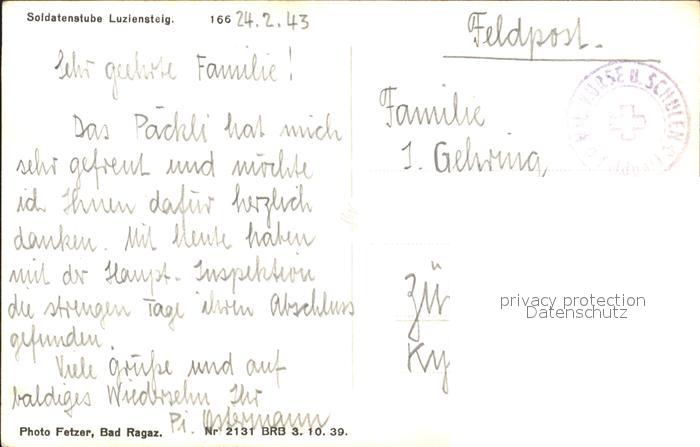 Soldatenstube Luziensteig. 166 24.2.43
Sehr geehrte Familie!
Das Päckli hat mich
sehr gefreut und möchte
ich Ihnen dafür herzlich
danken. Mit Heute haben
mit der Haupt-Inspektion
die strengen Tage ihren Abschluss
gefunden.
Viele Grüße und auf
baldiges Wiedersehn Ihr
Pi. Ostermann
Photo Fetzer, Bad Ragaz. Nr 2131 BRB 3. 10. 39.
Feldpost.
KURSE U. SCHULEN
Familie
J. Gehring,
Zü
Ky
privacy protection
Datenschutz